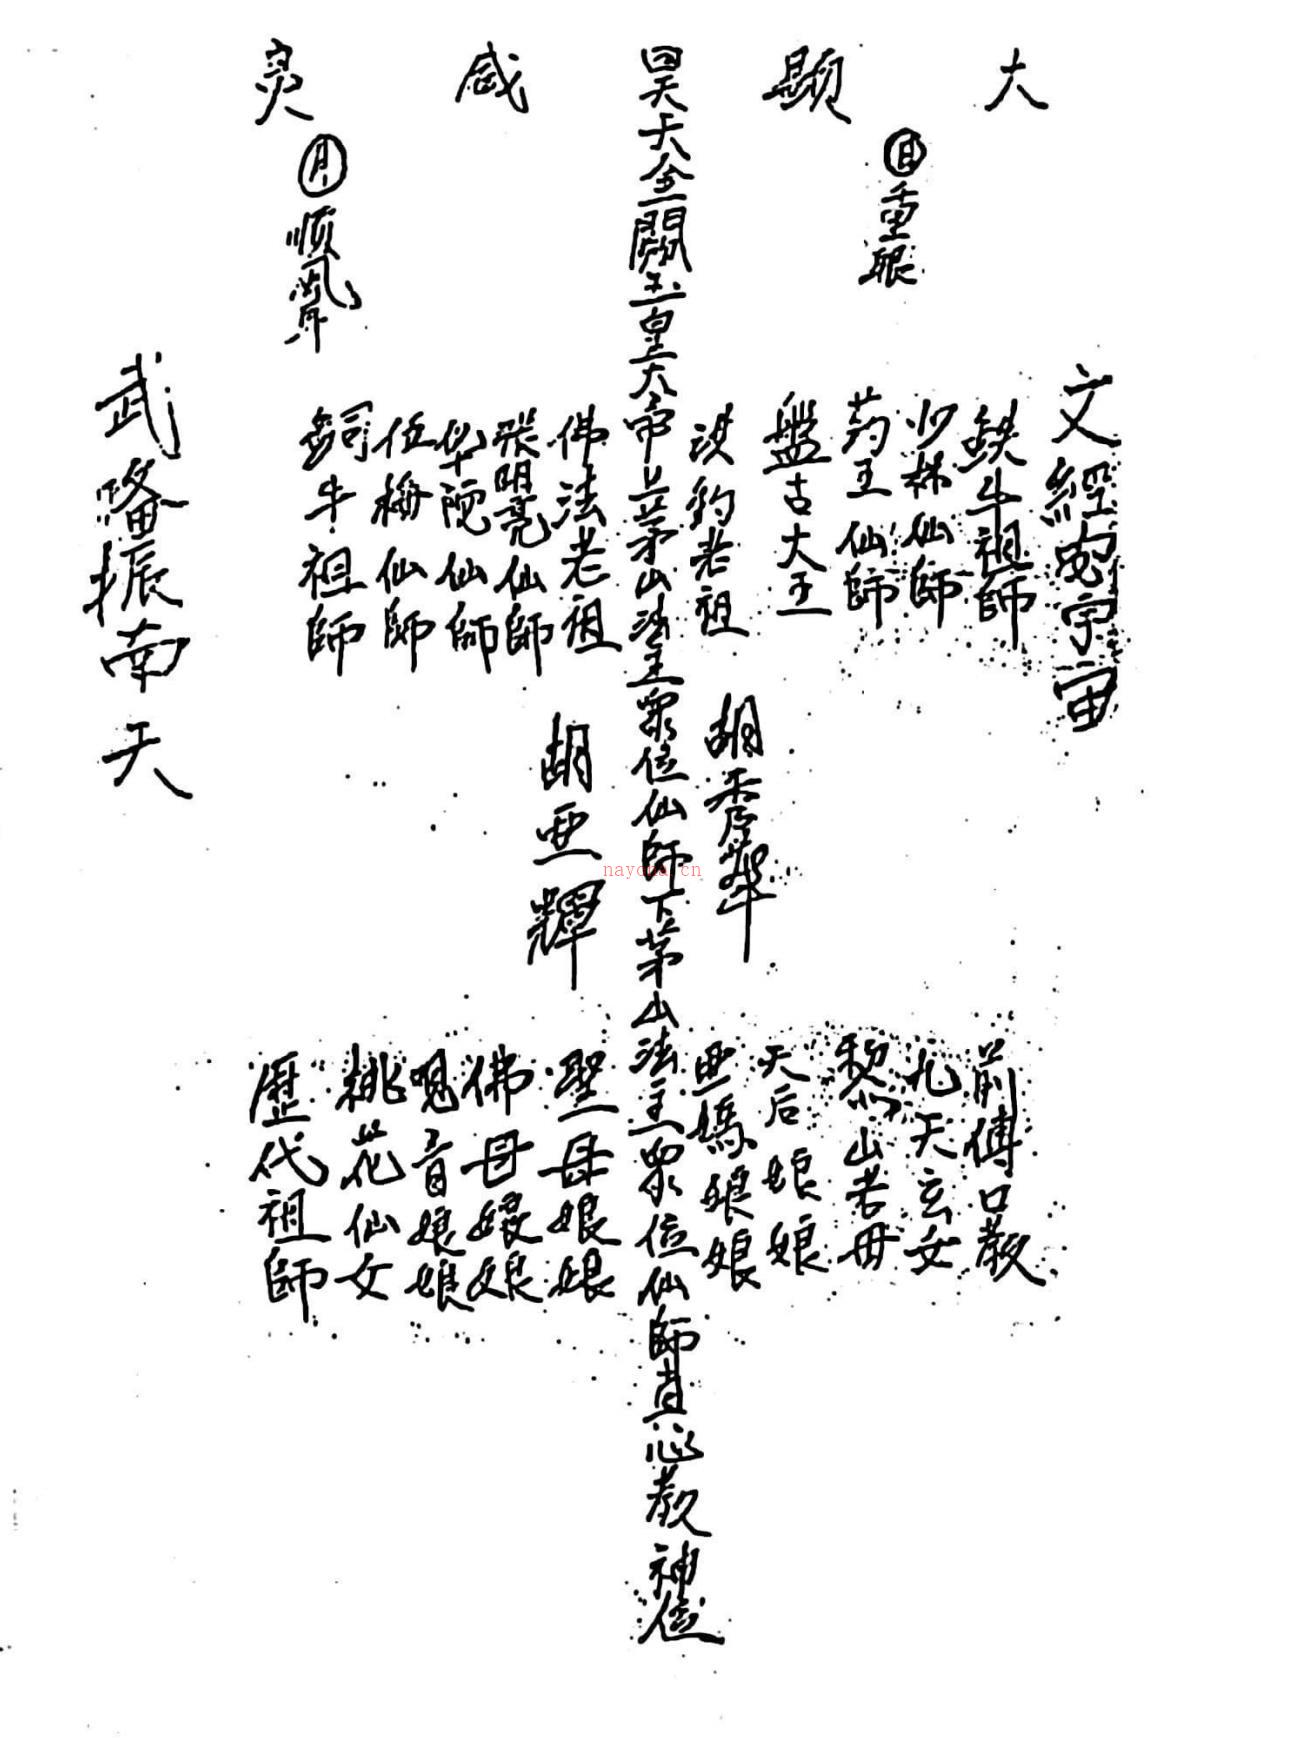 大顯威灵
日
重眼
月
順風耳
文經宇宙
武隆振南天
鉄牛祖師
少林仙師
葯王仙師
盤古大王
老祖
昊天金闕玉皇大帝上茅山法王眾位仙師下茅山法王眾位仙師真心教神位
佛法老祖
張明亮仙師
华陀仙師
伍梅仙師
飼牛祖師
胡秀華
胡亜輝
前傳口教
九天玄女
黎山老母
天后娘娘
亜媽娘娘
聖母娘娘
佛母娘娘
观音娘娘
桃花仙女
歷代祖師
nayona.cn